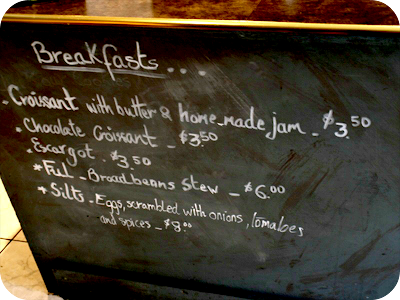 Breakfasts...
- Croissant with butter & home-made jam - $3.50
• Chocolate Croissant - $3.50
- Escargot - $3.50
* Ful - Broadbeans Stew - $6.00
* Silts - Eggs, scrambled with onions, tomatoes
and spices - $8.00